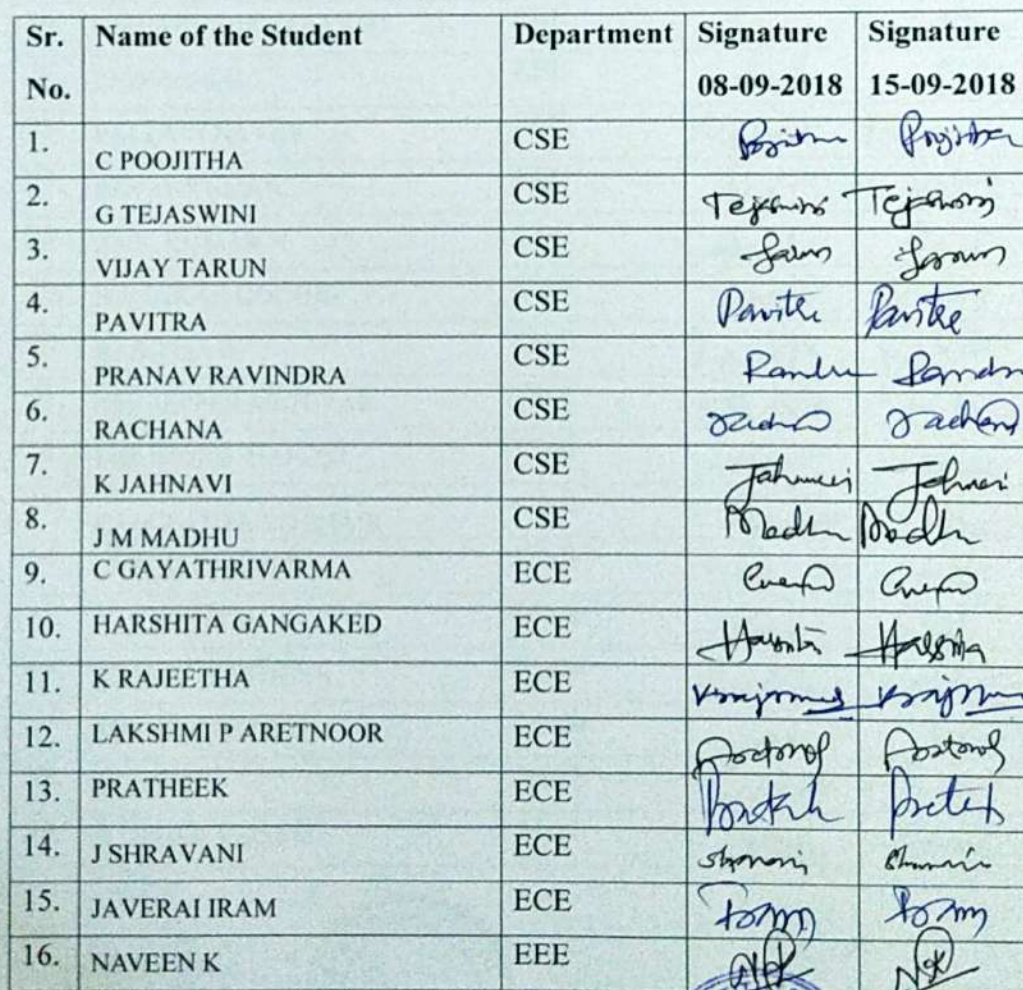 Sr. No. Name of the Student Department Signature 08-09-2018 Signature 15-09-2018
1. C POOJITHA CSE Poojitha Poojitha
2. G TEJASWINI CSE Tejaswini Tejaswini
3. VIJAY TARUN CSE Tarun Tarun
4. PAVITRA CSE Pavitra Pavitra
5. PRANAV RAVINDRA CSE
6. RACHANA CSE Rachana
7. K JAHNAVI CSE Jahnavi Jahnavi
8. J M MADHU CSE Madhu Madhu
9. C GAYATHRIVARMA ECE
10. HARSHITA GANGAKED ECE Harshita Harshita
11. K RAJEETHA ECE
12. LAKSHMI P ARETNOOR ECE
13. PRATHEEK ECE
14. J SHRAVANI ECE
15. JAVERAI IRAM ECE
16. NAVEEN K EEE